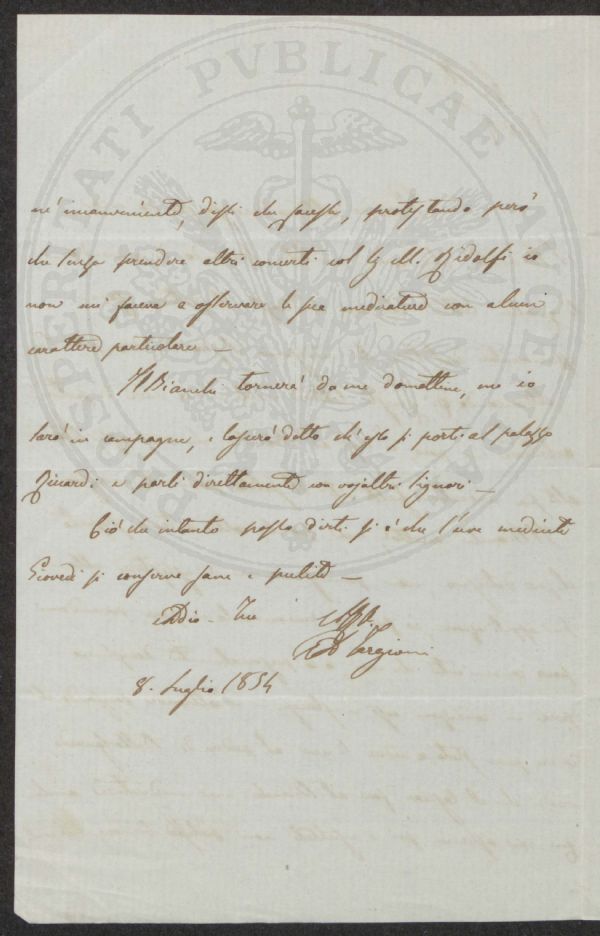 PROSPERITATI PVBLICAE AVGENDAE
né inconvenienti, dissi che facesse, protestando però
che senza prendere altri concerti col March. Ridolfi io
non mi faceva a osservare le sue medicature con alcun
carattere particolare —
Il Bianchi tornerà da me domattina, ma io
sarò in campagna, e lascerò detto ch'esso si porti al palazzo
Riccardi e parli direttamente con voialtri Signori —
Ciò che intanto posso dirti si è che l'uva medicata
Giovedì si conserva sana e pulita —
Addio - Tuo Aff.
A Targioni
8. Luglio 1854